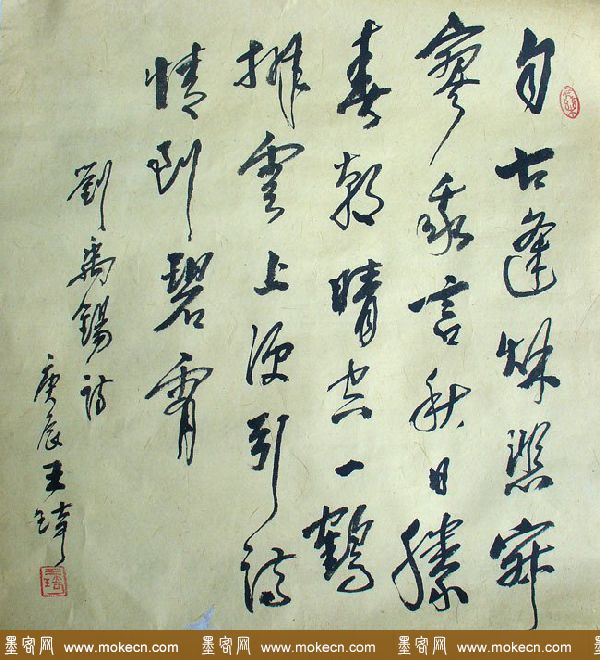 自古逢秋悲寂
寥我言秋日勝
春朝晴空一鶴
排雲上便引詩
情到碧霄
劉禹錫詩
庚辰王
墨客网 www.mokecn.com 墨客网 www.mokecn.com 墨客网 www.mokecn.com 墨